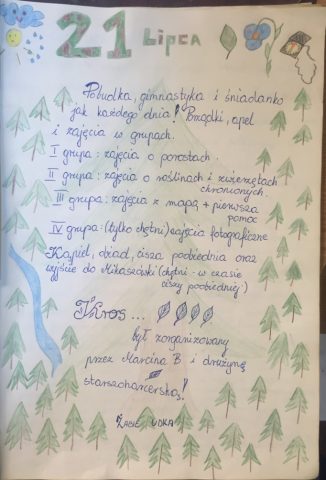 21 Lipca
Pobudka, gimnastyka i śniadanko
jak każdego dnia! Porządki, apel
i zajęcia w grupach.
I grupa: zajęcia o porostach.
II grupa: zajęcia o roślinach i zwierzętach
chronionych.
III grupa: zajęcia z mapą + pierwsza
pomoc
IV grupa: (tylko chętni) zajęcia fotograficzne
Kąpiel, obiad, cisza poobiednia oraz
wyjście do Mikaszówki (chętni: w czasie
ciszy poobiedniej)
był zorganizowany
przez Marcina B i drużynę
starszoharcerską!
Żabie udka